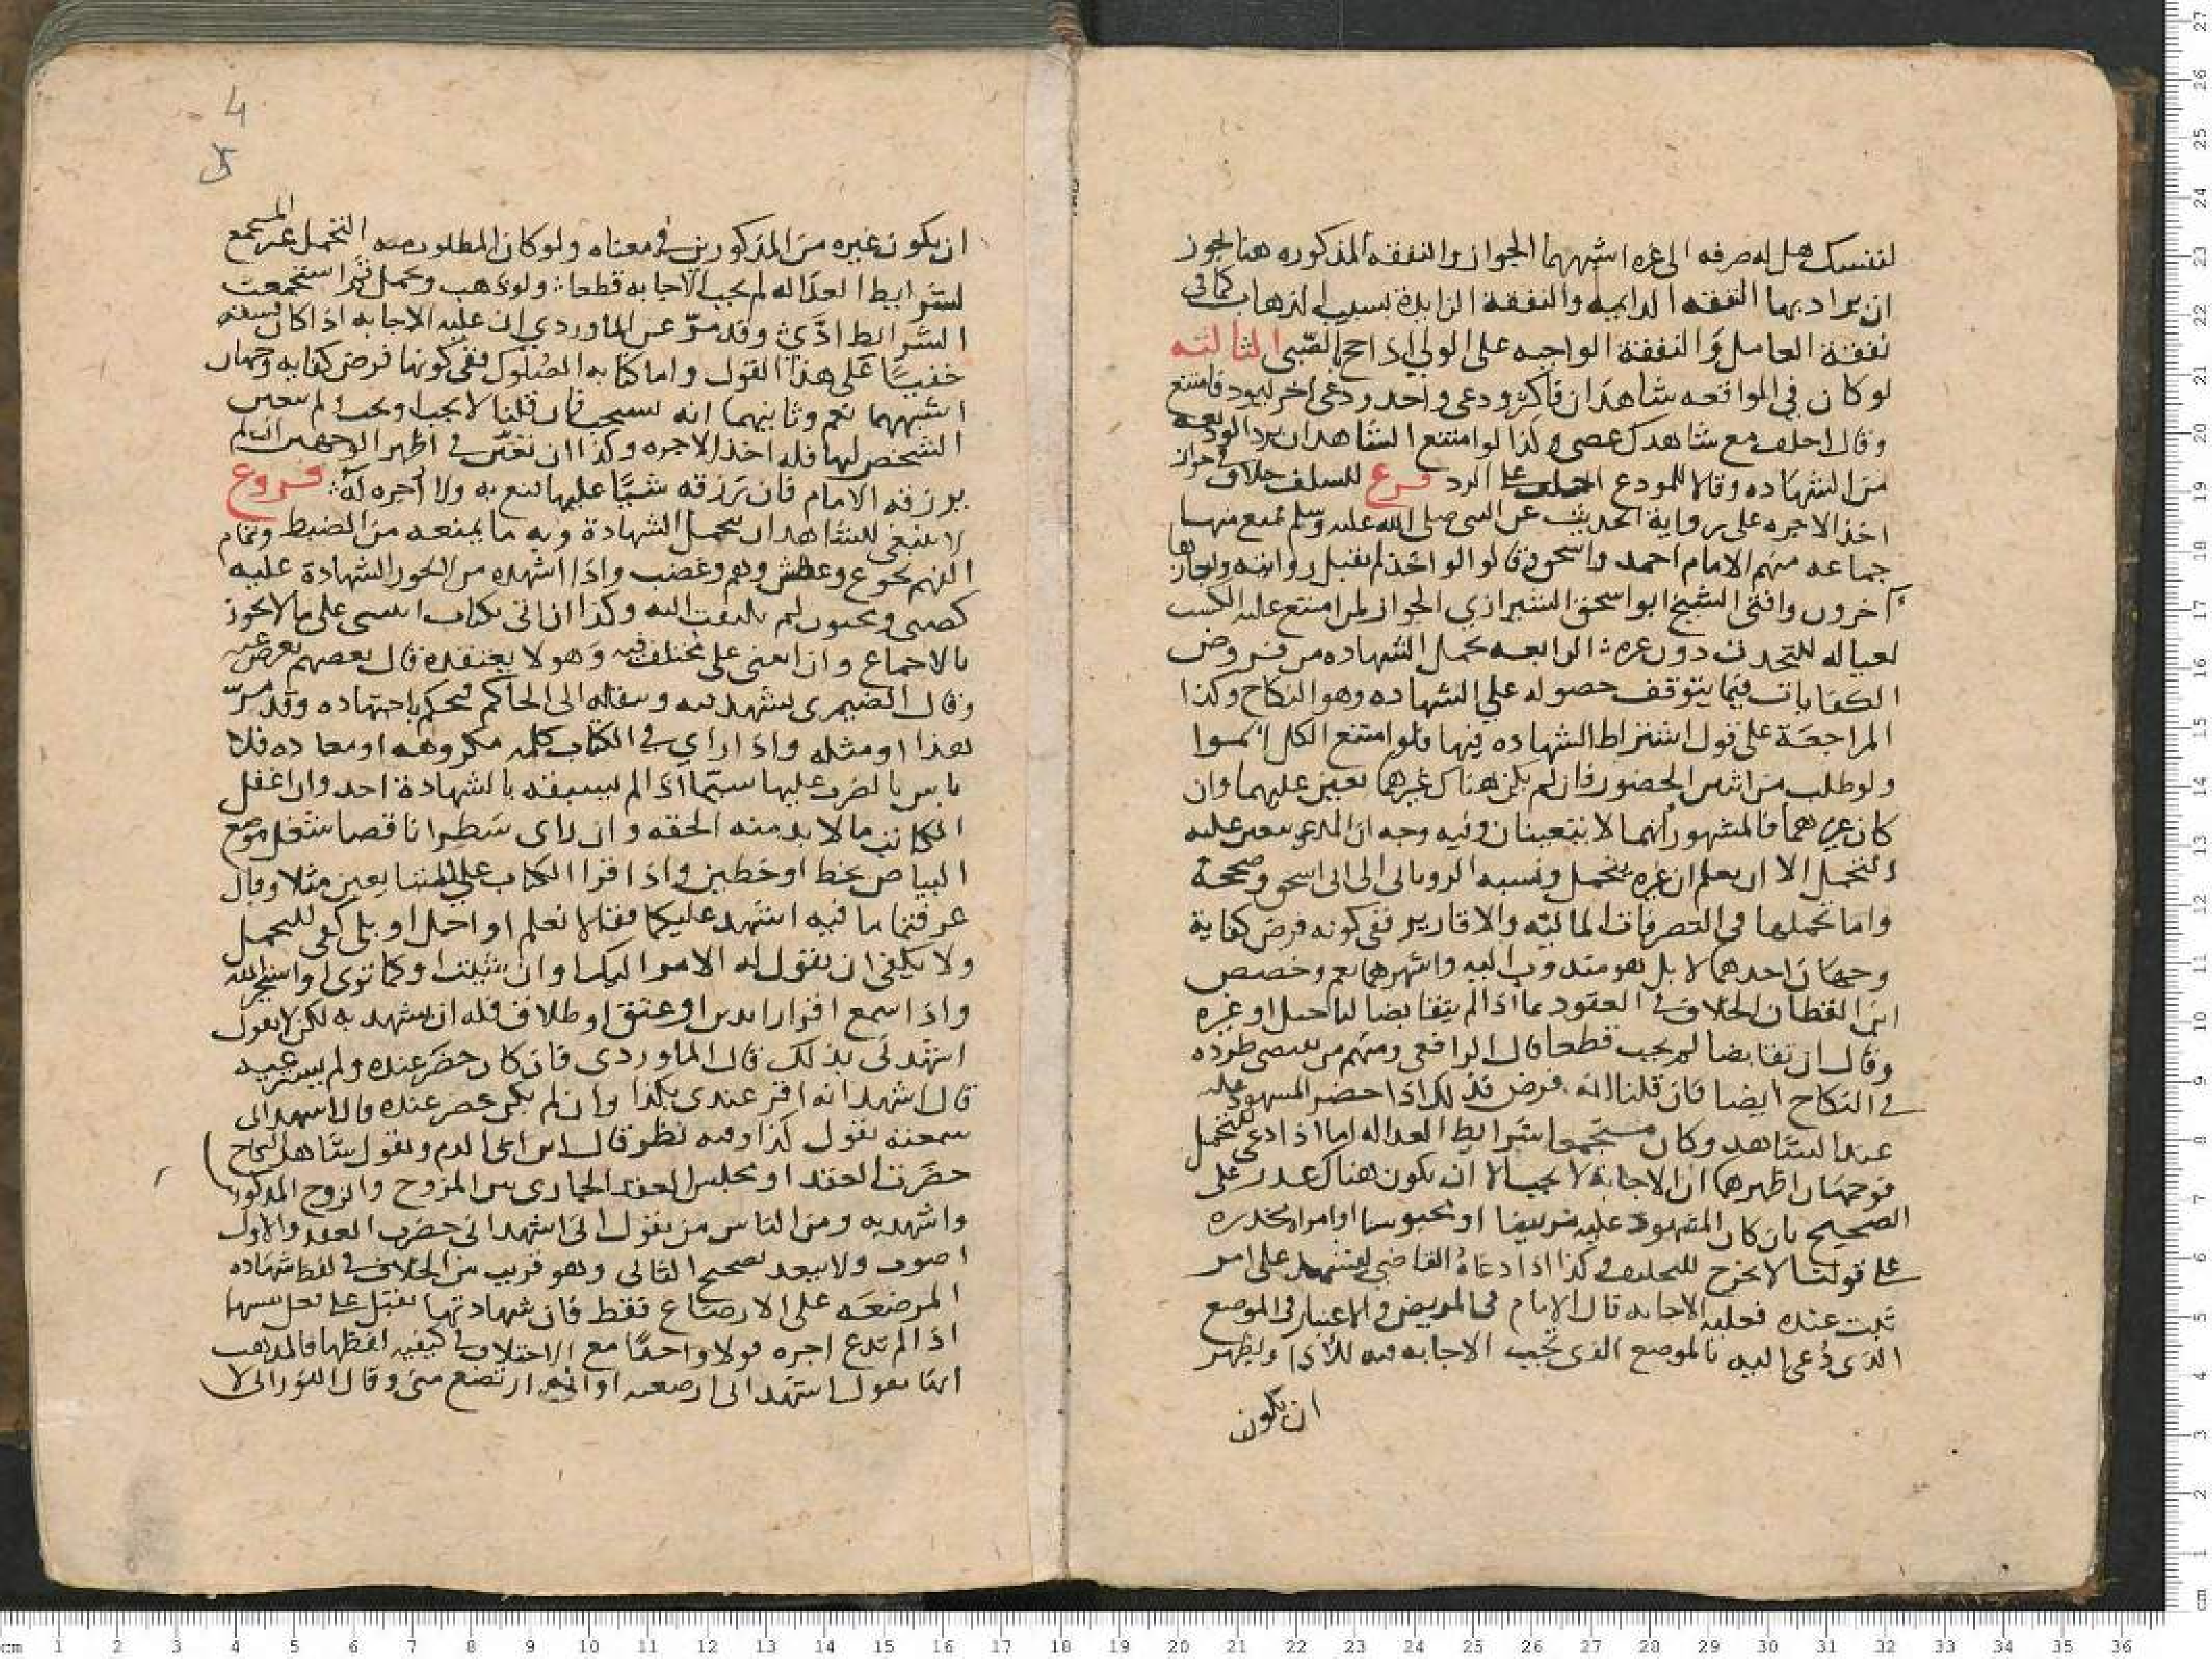 لنفسك هل له صرفه الى غيره اشبههما الجواز والنفقه المذكوره هنا يجوز
ان يراد بها النفقه الدايمه والنفقة الزايدة بسبب الذهاب كما في
نفقة العامل والنفقة الواجبه على الولي اذا حج بالصبي الثالثه
لو كان في الواقعه شاهدان فاكثر ودعي واحد ودعي اخر ليودي فامتنع
وقال احلف مع شاهدك عصى وكذا لو امتنع الشاهدان برد الوديعه
من الشهاده وقالا للمودع احلف على الرد فرع للسلف خلاف في جواز
اخذ الاجره على رواية الحديث عن النبي صلى الله عليه وسلم فمنع منها
جماعه منهم الامام احمد واسحق وقالوا لو اخذ لم تقبل روايته واجازها
آخرون وافتى الشيخ ابو اسحق الشيرازي بالجواز لمن امتنع عليه الكسب
لعياله للتحديث دون غيره الرابعه تحمل الشهاده من فروض
الكفايات فيما يتوقف حصوله على الشهاده وهو النكاح وكذا
المراجعة على قول اشتراط الشهاده فيها فلو امتنع الكل اثموا
ولو طلب من اثنين الحضور فان لم يكن هناك غيرهما تعين عليهما وان
كان غيرهما فالمشهور انهما لا يتعينان وفيه وجه ان المدعو يتعين عليه
التحمل الا ان يعلم ان غيره يتحمل ونسبه الروياني الى ابي اسحق وصححه
واما تحملها في التصرفات الماليه والاقارير ففي كونه فرض كفاية
وجهان احدهما لا بل هو مندوب اليه واشهرهما نعم وخصص
ابن القطان الخلاف في العقود بما اذا لم يتقابضا لتاجيل او غيره
وقال ان تقابضا لم يجب قطعا قال الرافعي ومنهم من يقتضي طرده
في النكاح ايضا فان قلنا انه فرض فذلك اذا حضر المشهود عليه
عند الشاهد وكان مستجمعا شرايط العداله اما اذا دعي للتحمل
فوجهان اظهرهما ان الاجابة لا تجب الا ان يكون هناك عذر على
الصحيح بان كان المشهود عليه مريضا او محبوسا او امراة مخدره
على قولنا لا تخرج للتحليف وكذا اذا دعاه القاضي ليشهده على امر
ثبت عنده فعليه الاجابه قال الامام في المريض والاعتبار في الموضع
الذي دعي اليه بالموضع الذي تجب الاجابه منه للأداء ويظهر
ان يكون
4
5
ان يكون غيره من المذكورين في معناه ولو كان المطلوب منه التحمل غير المستجمع
لشرايط العداله لم تجب الاجابه قطعا ولو ذهب وتحمل ثم استجمعت
الشرايط ادى وقد مر عن الماوردي ان عليه الاجابه اذا كان فسقه
خفيا على هذا القول واما كتابه الصكوك ففي كونها فرض كفايه وجهان
اشبههما نعم وثانيهما انه تستحب فان قلنا لا تجب او تجب ولم تتعين
الشخص لها فله اخذ الاجره وكذا ان تعين في اظهر الوجهين ان لم
يرزقه الامام فان رزقه شيئا عليها قنع به ولا اجره له فروع
لا ينبغي للشاهد ان يتحمل الشهادة وبه ما يمنعه من الضبط وتمام
الفهم كجوع وعطش وهم وغضب واذا اشهده من لا تجوز الشهادة عليه
كصبي ومجنون لم يلتفت اليه وكذا ان اتي بكتاب انشئ على ما لا يجوز
بالاجماع وان انشئ على مختلف فيه وهو لا يعتقده قال بعضهم يعرض عنه
وقال الضيمري يشهد فيه وينقله الى الحاكم ليحكم باجتهاده وقد مر
هذا او مثله واذا راي في الكتاب كلمه مكروهه او معاده فلا
باس بالضرب عليها سيما اذا لم يسبقه بالشهادة احد وان اغفل
الكاتب ما لا بد منه الحقه وان راى سطرا ناقصا شغل موضع
البياض بخط او خطين واذا قرا الكتاب على المتبايعين مثلا وقال
عرفتما ما فيه اشهد عليكما فقالا نعم او اجل او بلى كفى للتحمل
ولا يكفي ان يقولا له الامر اليك او ان شئت او كما ترى او استخر الله
واذا سمع اقرارا بدين او عتق او طلاق فله ان يشهد به لكن لا يقول
اشهدني بذلك قال الماوردي فان كان حضر عنده ولم يسترعيه
قال اشهد انه اقر عندي بكذا وان لم يكن حضر عنده قال اشهد اني
سمعته يقول كذا وفيه نظر قال ابن ابي الدم ويقول شاهد النكاح
حضرت العقد او مجلس العقد الجاري بين المزوج والزوج المذكور
واشهد به ومن الناس من يقول اني اشهد اني حضرت العقد والاول
اصوب ولا يبعد تصحيح الثاني وهو قريب من الخلاف في لفظ شهاده
المرضعه على الارضاع فقط فان شهادتها تقبل على فعل نفسها
اذا لم تدع اجره قولا واحدا مع الاختلاف في كيفيه لفظها فالمذهب
انها تقول اشهد اني ارضعته او انه ارتضع مني وقال الفوراني لا